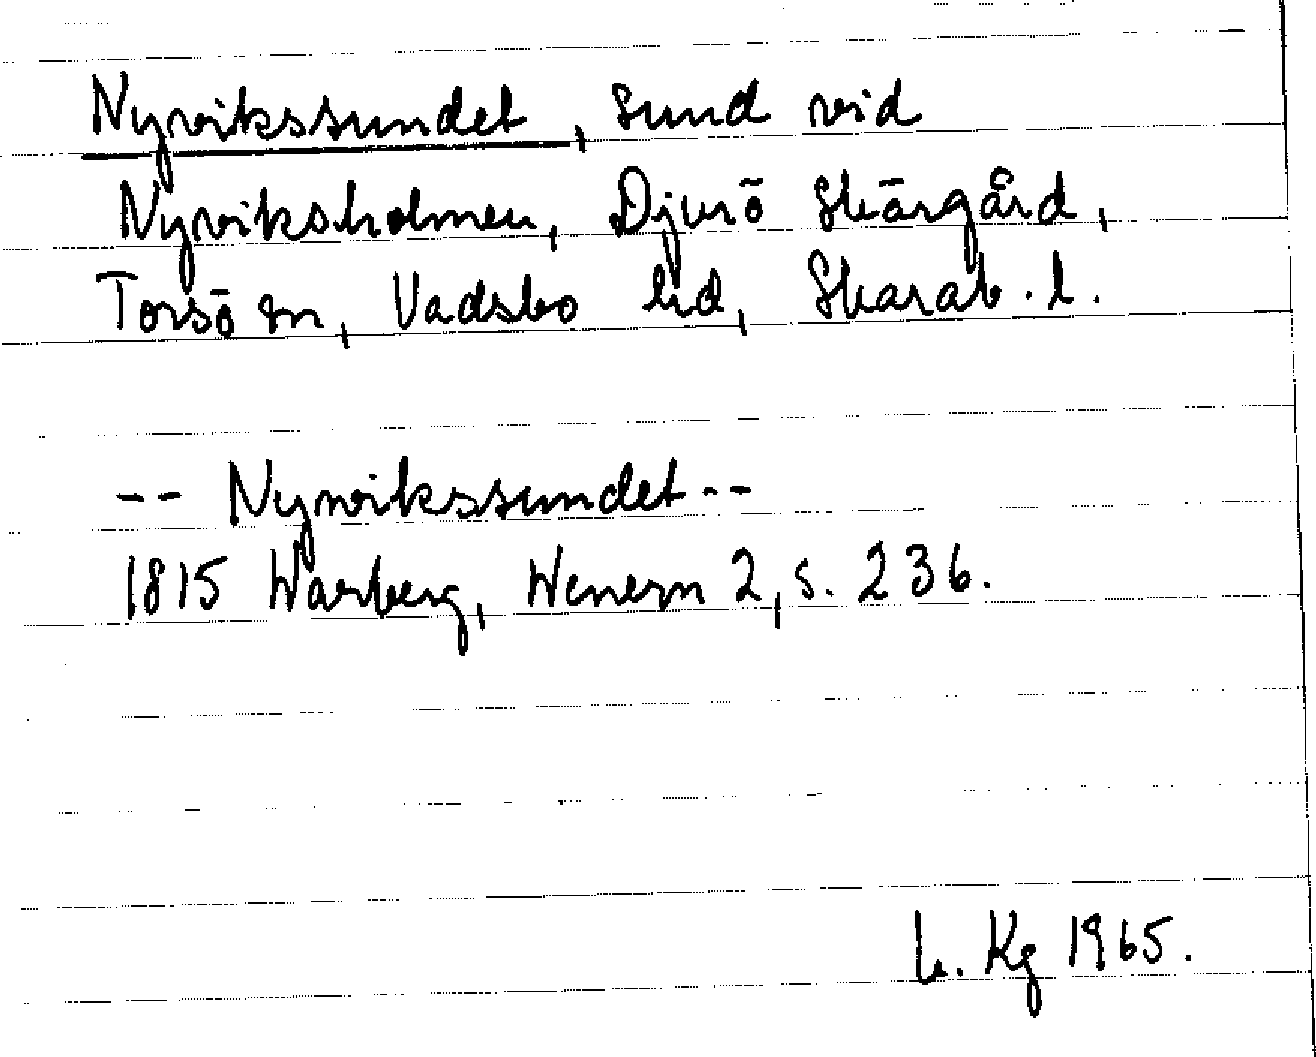 Nyvikssundet, sund vid
Nyviksholmen, Djurö skärgård,
Torsö sn, Vadsbo hd, Skarab. l.
-- Nyvikssundet --
1815 Warberg, Wenern 2, s. 236.
L. Kg 1965.